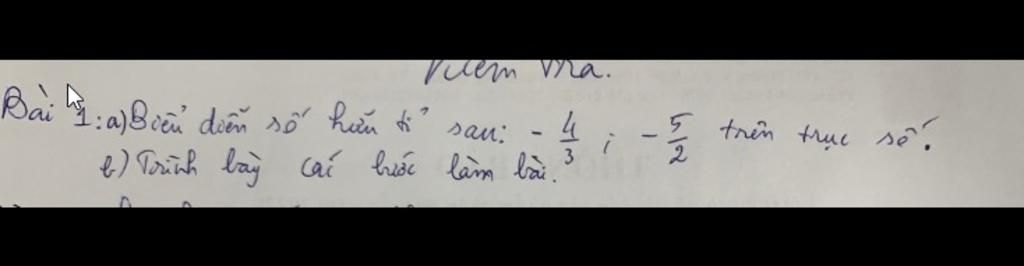 Kiểm tra.
Bài 1: a) Biểu diễn số hữu tỉ sau: - 4/3 ; - 5/2 trên trục số.
b) Trình bày các bước làm bài.